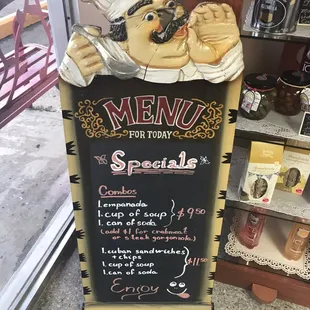 MENU
FOR TODAY
Specials
Combos
1.empanada
1.cup of soup $9.50
1.can of soda
(add $1 for crabmeat
or steak gorgonzola)
1.cuban sandwiches
+ chips
1.cup of soup $11.50
1.can of soda
Enjoy